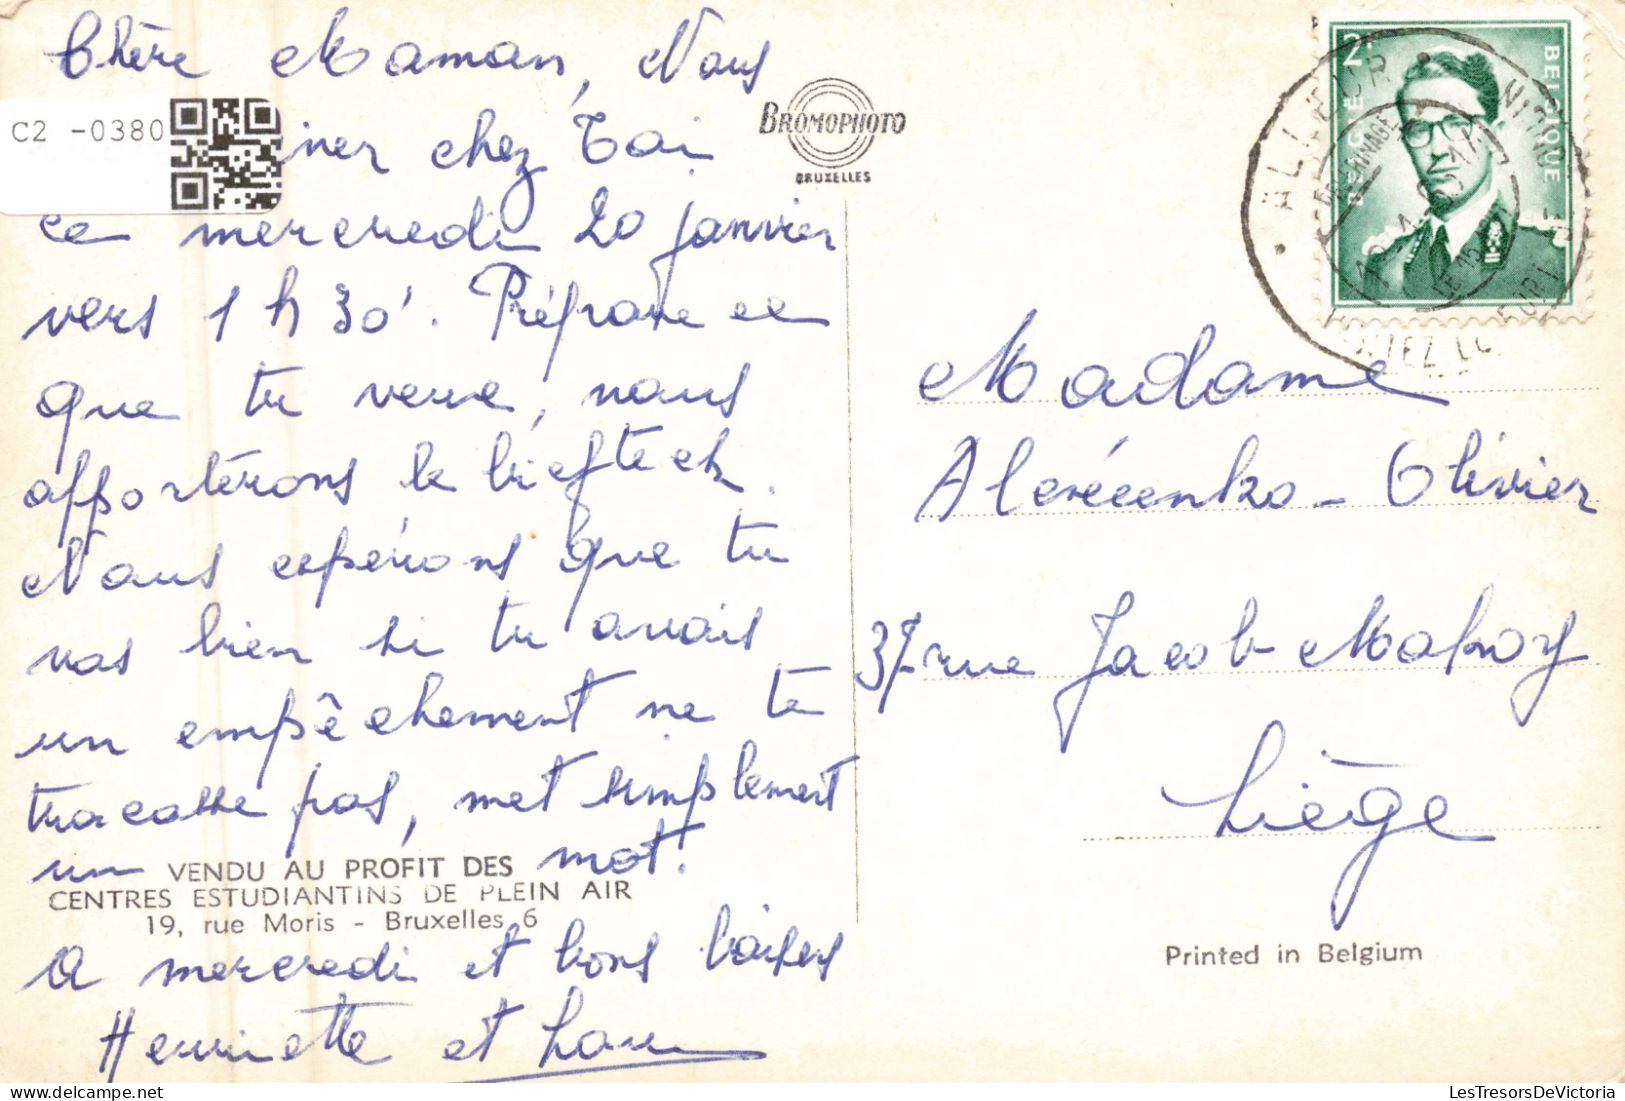 Chère Maman, Nous
iner chez Toi
ce mercredi 20 janvier
vers 1 h 30'. Prépare ce
que tu veux, nous
apporterons le biefteck.
Nous espérons que tu
vas bien si tu avais
un empêchement ne te
tracasse pas, met simplement
un mot.
A mercredi et bons baisers
Henriette et
C2 -0380
VENDU AU PROFIT DES
CENTRES ESTUDIANTINS DE PLEIN AIR
19, rue Moris - Bruxelles 6
BROMOPHOTO
BRUXELLES
2F
BELGIE BELGIQUE
ALLEUR
Madame
Olivier
37 rue Jacob Makoy
Liège
Printed in Belgium
LesTresorsDeVictoria